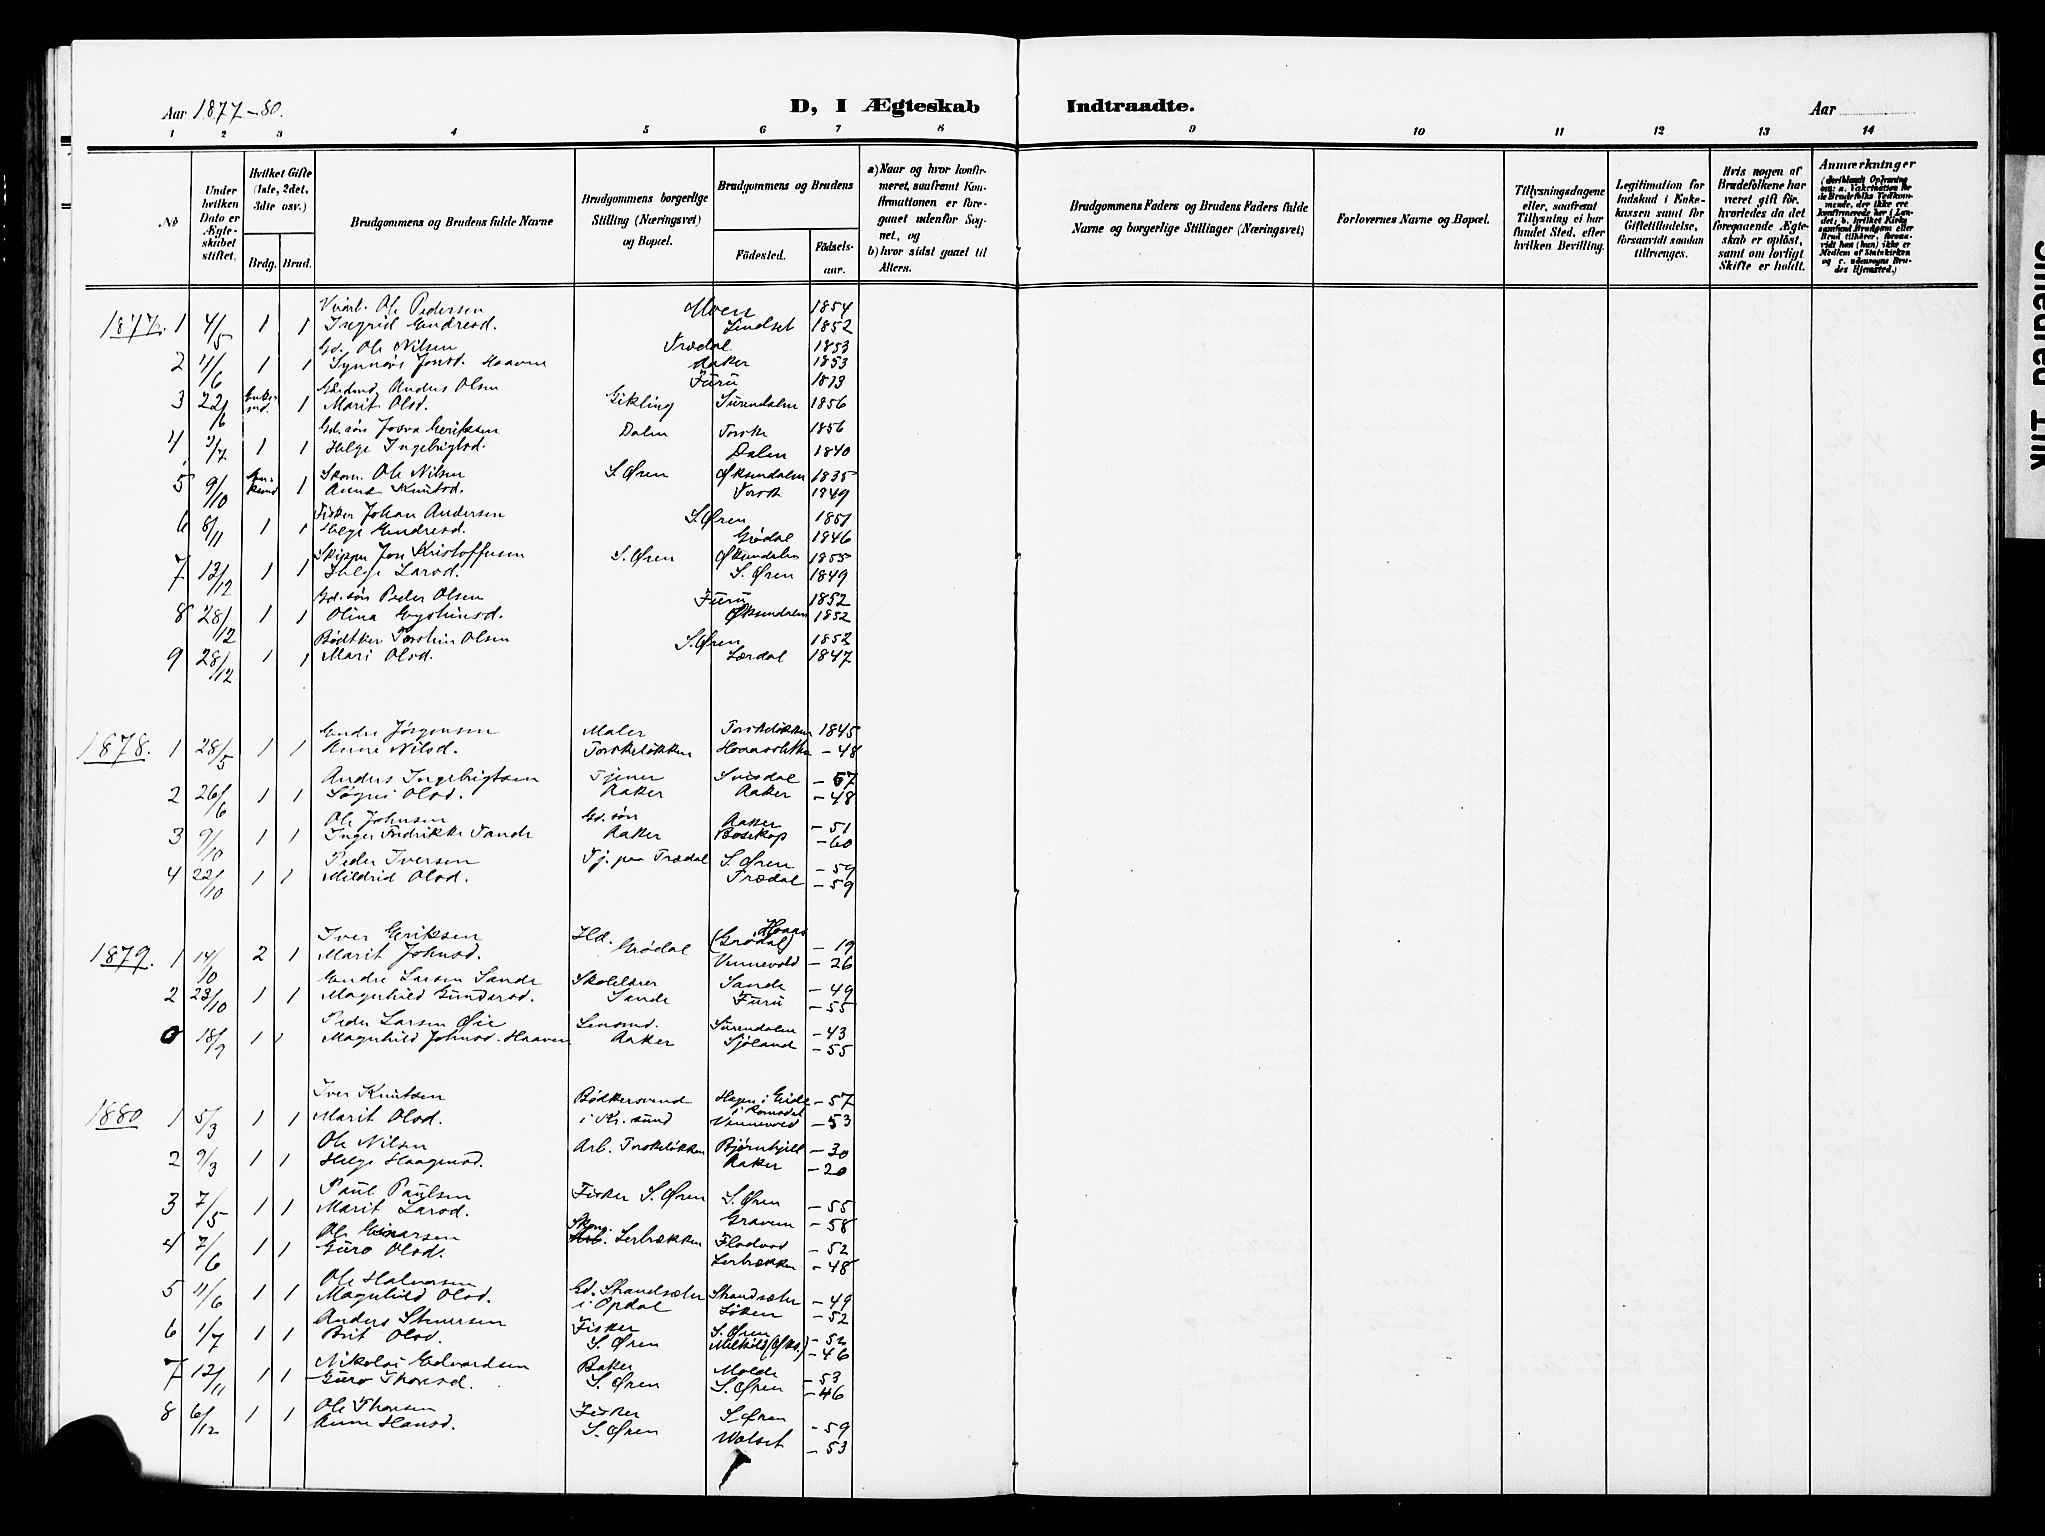 Aar 1877-80.
D, I Ægteskab Indtraadte.
Aar
1 2 3 4 5 6 7 8 9 10 11 12 13 14
No
Under hvilken Dato er Ægteskabet stiftet.
Hvilket Gifte (1ste, 2det, 3die osv.)
Brdg. Brud.
Brudgommens og Brudens fulde Navne
Brudgommens borgerlige Stilling (Næringsvei) og Bopæl.
Brudgommens og Brudens
Födested.
Födselsaar.
a) Naar og hvor konfirmeret, saafremt Konfirmationen er foregaaet udenfor Sognet, og
b) hvor sidst gaaet til Alters.
Brudgommens Faders og Brudens Faders fulde Navne og borgerlige Stillinger (Næringsvei)
Forlovernes Navne og Bopæl.
Tillysningsdagene eller, saafremt Tillysning ei har fundet Sted, efter hvilken Bevilling.
Legitimation for Indskud i Enkekassen samt for Giftetilladelse, forsaavidt saadan tiltrænges.
Hvis nogen af Brudefolkene har været gift för, hvorledes da det foregaaende Ægteskab er oplöst, samt om lovligt Skifte er holdt.
Anmærkninger
1877. 1 4/5 1 1 Ole Pedersen Moen 1854
Ingrid Endresd. Lindset 1852
2 11/6 1 1 Gd. Ole Nilsen Trædal 1853
Synnøv Jonsd. Haaven Aaker 1853
3 22/6 1 Anders Olsen Furu 1813
Marit Olsd. Gikling Surendalen 1856
4 9/7 1 1 Gd. søn Josva Eriksen Dalen Torske 1856
Helge Ingebrigtsd. Dalen 1840
5 9/10 1 Skom. Ole Nilsen S. Øren Øksendalen 1835
Anne Knutsd. Torske 1849
6 8/11 1 1 Fisker Johan Andersen S. Øren 1851
Helge Endresd. Grødal 1846
7 13/12 1 1 Skipper Jon Kristoffersen S. Øren Øksendalen 1855
Helge Larsd. S. Øren 1849
8 28/12 1 1 Gd. søn Peder Olsen Furu 1852
Olina Eysteinsd. Øksendalen 1852
9 28/12 1 1 Bødtker Torstein Olsen S. Øren 1852
Mari Olsd. Lærdal 1847
1878. 1 28/5 1 1 Endre Jørgensen Maler Torskeløkken 1845
Anne Nilsd. Torskeløkken -48
2 26/6 1 1 Anders Ingebrigtsen Tjener Svisdal -57
Søgni Olsd. Aaker Aaker -48
3 9/10 1 1 Ole Johnsen Gd. søn Aaker -51
Inger Fredrikke Tande Aaker Bosekop -60
4 22/10 1 1 Peder Iversen Tj. paa Trædal S. Øren -59
Mildrid Olsd. Trædal -59
1879. 1 14/10 2 1 Iver Eriksen Hd. Grødal Hoaas (Grødal) -19
Marit Johnsd. Vennevold -26
2 23/10 1 1 Endre Larsen Sande Skolelærer Sande -49
Magnhild Gundersd. Sande Furu -55
0 18/9 1 1 Peder Larsen Øie Lensmd. Surendalen -43
Magnhild Johnsd. Haaven Aaker Sjøland -55
1880 1 5/3 1 1 Iver Knutsen Bødkersvend Hagen i Eide i Romsdal -57
Marit Olsd. i Kr. sund Vennevold -53
2 9/3 1 1 Ole Nilsen Arb. Torskeløkken Bjørnhjell -30
Helge Haagensd. Aaker -20
3 7/5 1 1 Paul Paulsen Fisker S. Øren S. Øren -55
Marit Larsd. Gravem -58
4 7/6 1 1 Ole Einarsen Skom. Lerbrækken Fladvad -52
Guro Olsd. Lerbrækken -48
5 11/6 1 1 Ole Halvorsen Gd. Strandsæter Strandsæter -49
Magnhild Olsd. i Opdal Løken -52
6 1/7 1 1 Anders Skuersen Fisker S. Øren -52
Brit Olsd. S. Øren -46
7 12/11 1 1 Nikolai Edvardsen Baker Molde -53
Guro Thoresd. S. Øren S. Øren -46
8 6/12 1 1 Ole Thorsen Fisker S. Øren -59
Anne Hansd. S. Øren Wolset -53